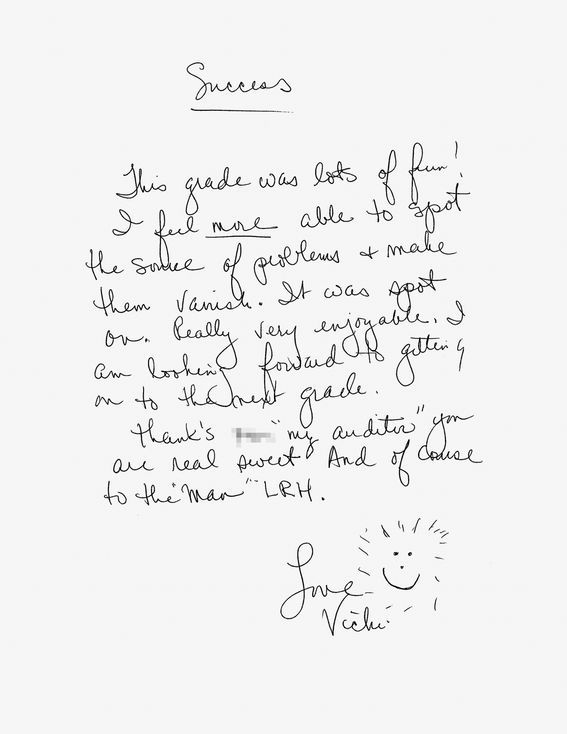 Success
This grade was lots of fun!
I feel more able to spot
the source of problems + make
them vanish. It was spot
on. Really very enjoyable. I
am looking forward to getting
on to the next grade.
Thank's "my auditor" you
are real sweet And of course
to the "Man" LRH.
Love
Vicki